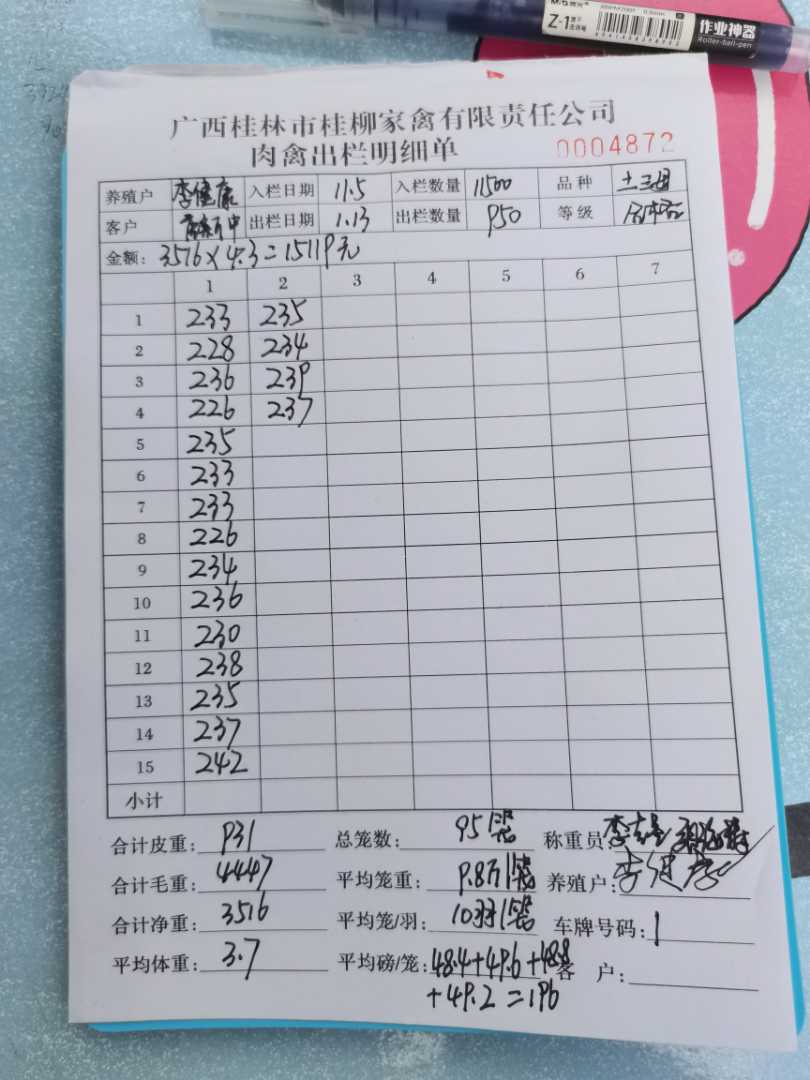 Z-1
作业神器
Roller-ball-pen
广西桂林市桂柳家禽有限责任公司
肉禽出栏明细单 0004872
养殖户 李健康 入栏日期 11.5 入栏数量 11500 品种 土三
客户 出栏日期 1.13 出栏数量 950 等级
金额: 3516×4.3=15119元
1 2 3 4 5 6 7
1 233 235
2 228 234
3 236 239
4 226 237
5 235
6 233
7 233
8 226
9 234
10 236
11 230
12 238
13 235
14 237
15 242
小计
合计皮重: 931 总笼数: 95 称重员: 李
合计毛重: 4447 平均笼重: 9.8 养殖户: 李健康
合计净重: 3516 平均笼/羽: 10羽 车牌号码: 1
平均体重: 3.7 平均磅/笼: 48.4+49.6+48.8 客 户:
+49.2=196